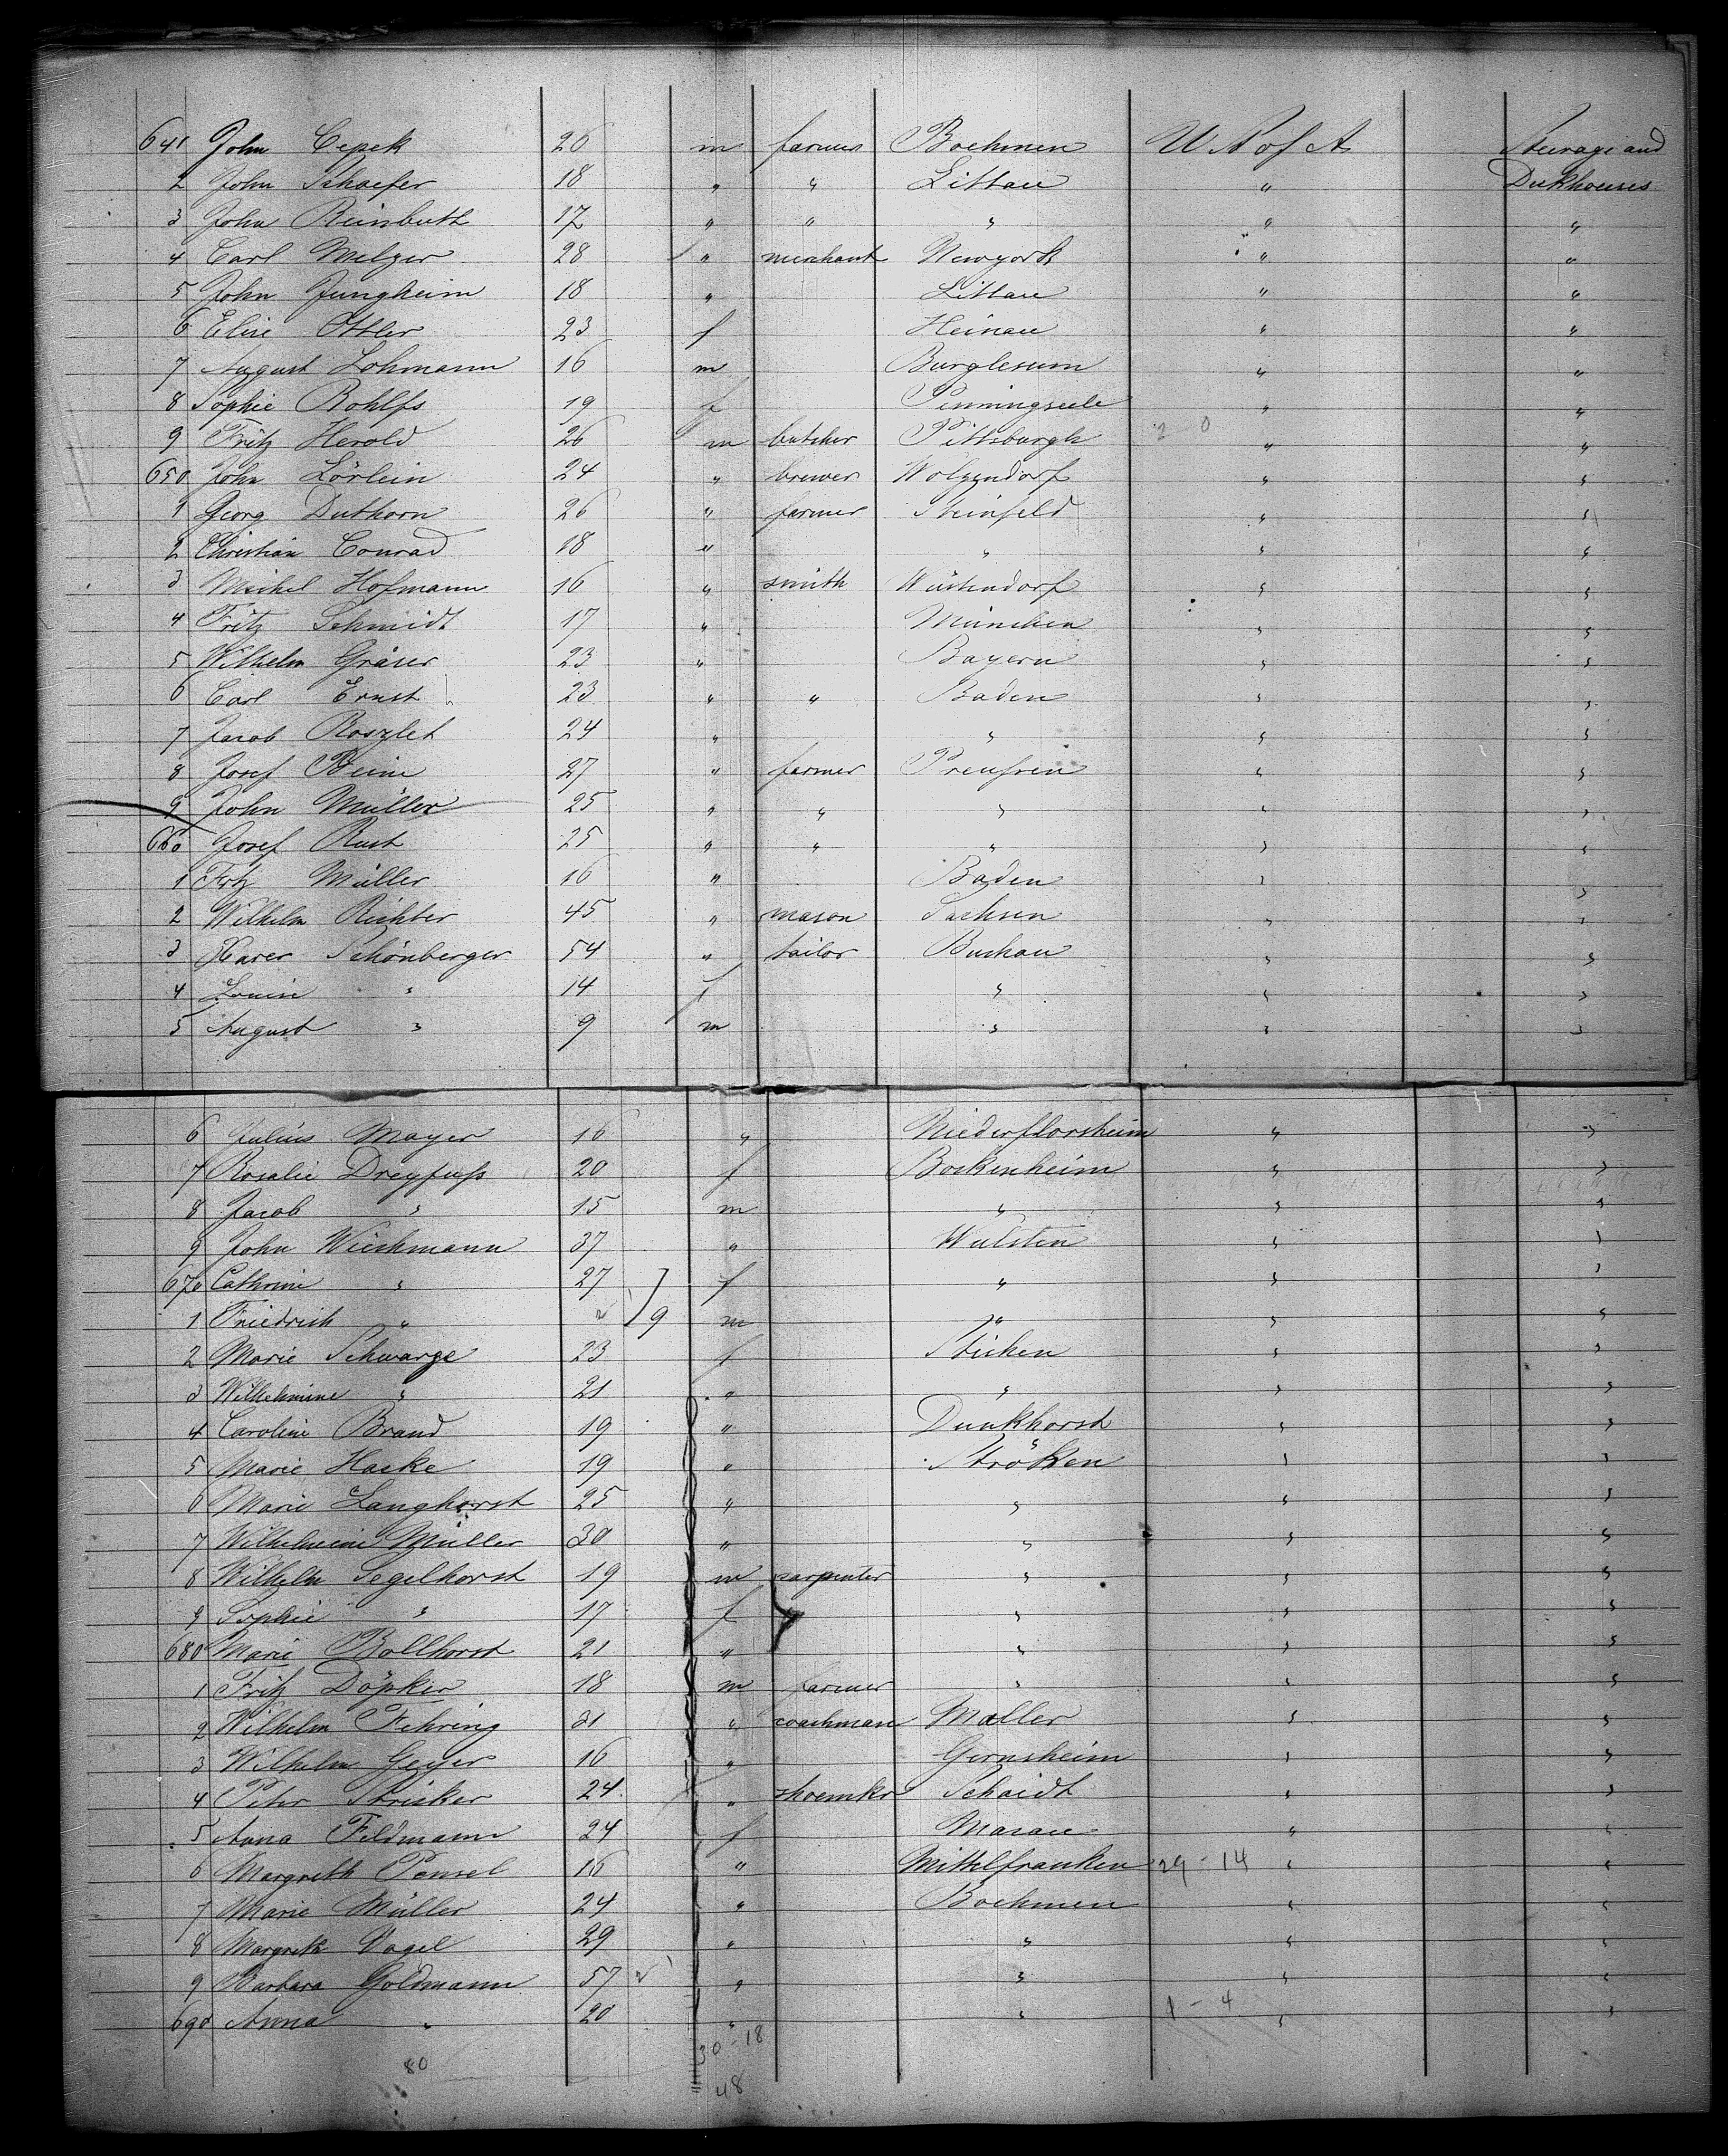 641 John Cepek 26 m farmer Boehmen U S of A Steerage and
2 John Schaefer 18 " " Littau " Deckhouses
3 John Reinbuth 17 " " " " "
4 Carl Melzer 28 " merchant Newyork " "
5 John Jungheim 18 " Littau " "
6 Elise Ottler 23 f Heinau " "
7 August Lohmann 16 m Burglesum " "
8 Sophie Rohlfs 19 f Penningseele " "
9 Fritz Herold 26 m butcher Pittsburgh 2 0 " "
650 John Lörlein 24 " brewer Wolgendorf " "
1 Georg Duthorn 26 " farmer Steinfeld " "
2 Christian Conrad 18 " " " "
3 Michel Hofmann 16 " smith Wüstendorf " "
4 Fritz Schmidt 17 " München " "
5 Wilhelm Gräser 23 " Bayern " "
6 Carl Ernst 23 " " Baden " "
7 Jacob Roszlet 24 " " " "
8 Josef Beine 27 " farmer Preußen " "
9 John Müller 25 " " " " "
660 Josef Rust 25 " " " " "
1 Fritz Müller 16 " Baden " "
2 Wilhelm Richter 45 " mason Sachsen " "
3 Xaver Schönberger 54 " tailor Buchau " "
4 Louise " 14 f " " "
5 August " 9 m " " "
6 Julius Mayer 16 " Niederflorsheim " "
7 Rosalie Dreyfuß 20 f Bockenheim " "
8 Jacob " 15 m " " "
9 John Wiechmann 37 " Wulsten " "
670 Cathrine " 27 f " " "
1 Friedrich " 9 m " " "
2 Marie Schwarze 23 f Stüchen " "
3 Wilhelmine " 21 " " " "
4 Caroline Brand 19 " Dunkhorst " "
5 Marie Hacke 19 " Ströhen " "
6 Marie Langhorst 25 " " " "
7 Wilhelmine Müller 30 " " " "
8 Wilhelm Segelhorst 19 m carpenter " " "
9 Sophie " 17 f " " "
680 Marie Bollhorst 21 " " " "
1 Fritz Döpker 18 m farmer " " "
2 Wilhelm Fehring 31 " coachman Maller " "
3 Wilhelm Geyer 16 " Gernsheim " "
4 Peter Stricker 24 " shoemkr Schaidt " "
5 Anna Feldmann 24 f Masau " "
6 Margreth Pensel 16 " Mittelfranken 29 - 14 " "
7 Marie Müller 24 " Boehmen " "
8 Margreth Vogel 29 " " " "
9 Barbara Goldmann 57 " " " "
690 Anna " 20 " " 1 - 4 " "
30 - 18
80
48